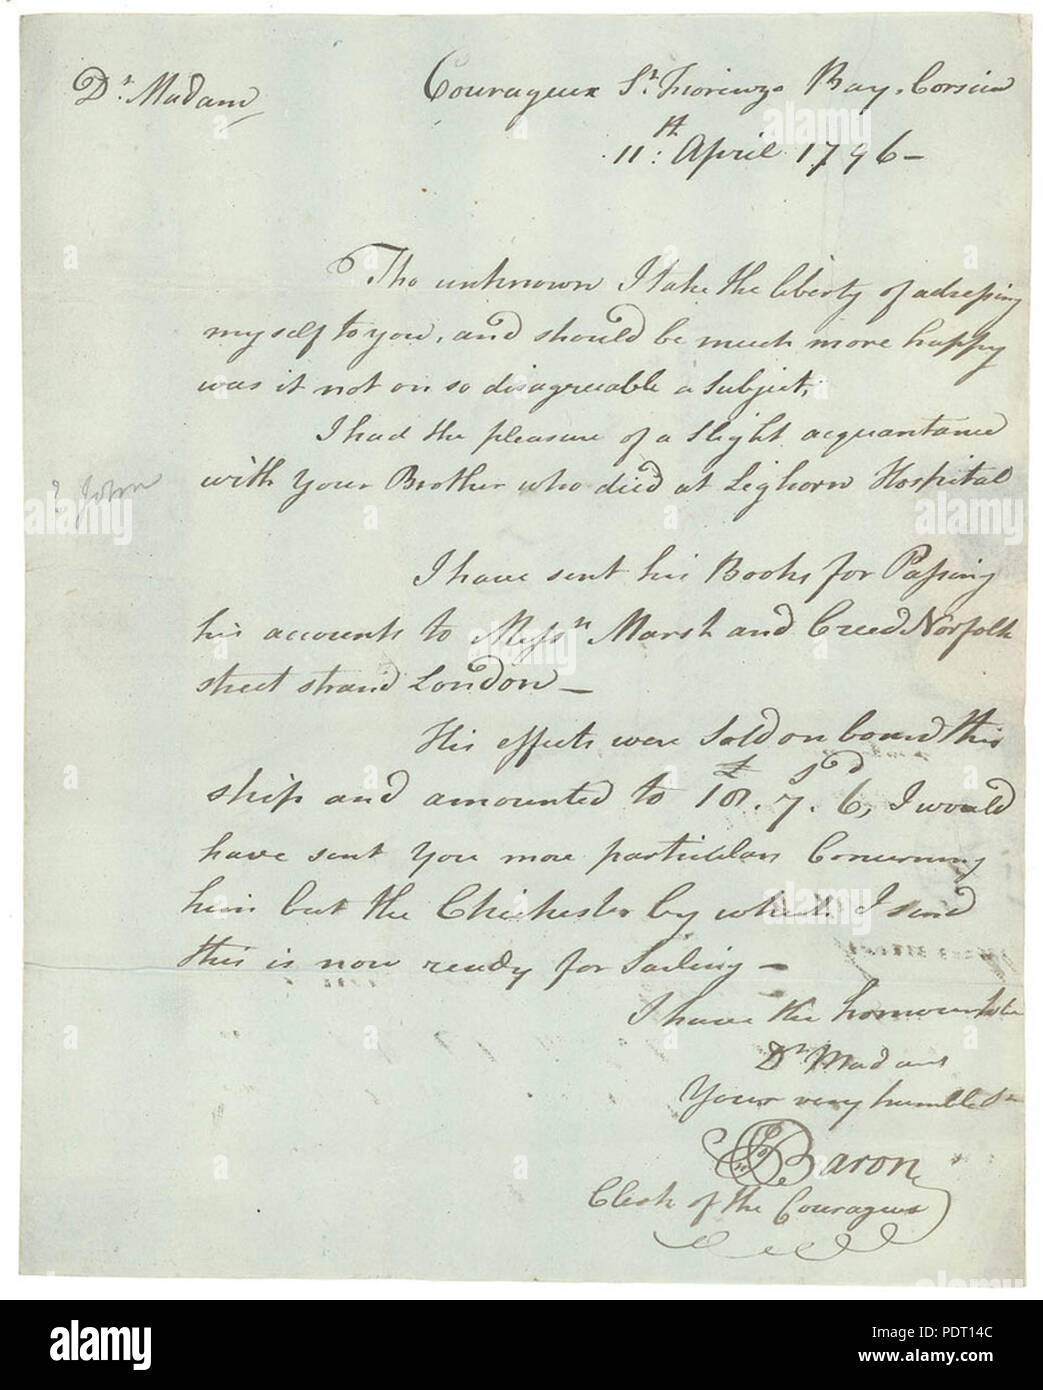 Dr. Madam
Courageux St. Fiorenzo Bay, Corsica
11th: April 1796 –
Tho unknown I take the liberty of adressing
myself to you, and should be much more happy
was it not on so disagreeable a Subject,
I had the pleasure of a Slight acquantance
with your Brother who died at Leghorn Hospital
? John
I have sent his Books for Passing
his accounts to Messrs Marsh and Creed Norfolk
street strand London –
His effects were Sold on board this
ship and amounted to £18. s7. d6, I would
have sent you more particulars Concerning
him but the Chichester by which I send
this is now ready for Sailing –
I have the honour to be
Dr. Madam
Your very humble St
Baron
Clerk of the Courageux
alamy
PDT14C
www.alamy.com